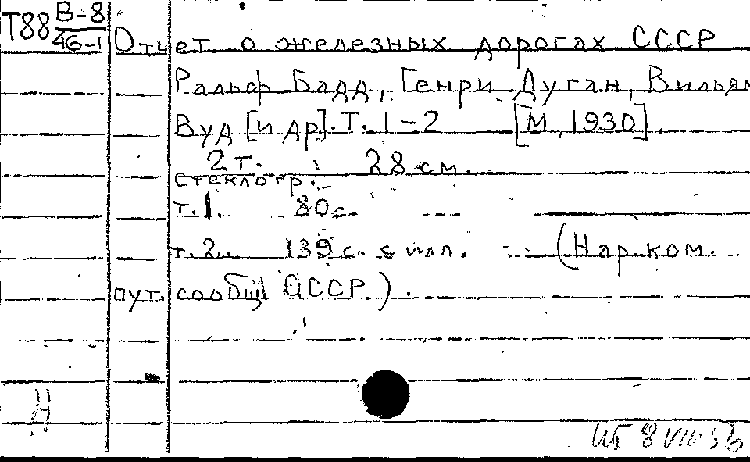 Т88 В-8
46-1
Отчет о железных дорогах СССР
Ральф Бадд, Генри Дуган, Вильям
Вуд [и др]. Т. 1-2 [М, 1930].
2 т. 28 см.
стеклогр.
т.1. 80с.
т.2. 139 с. с илл. (Нар. ком.
пут. сообщ СССР).
Н
8 VIII 56